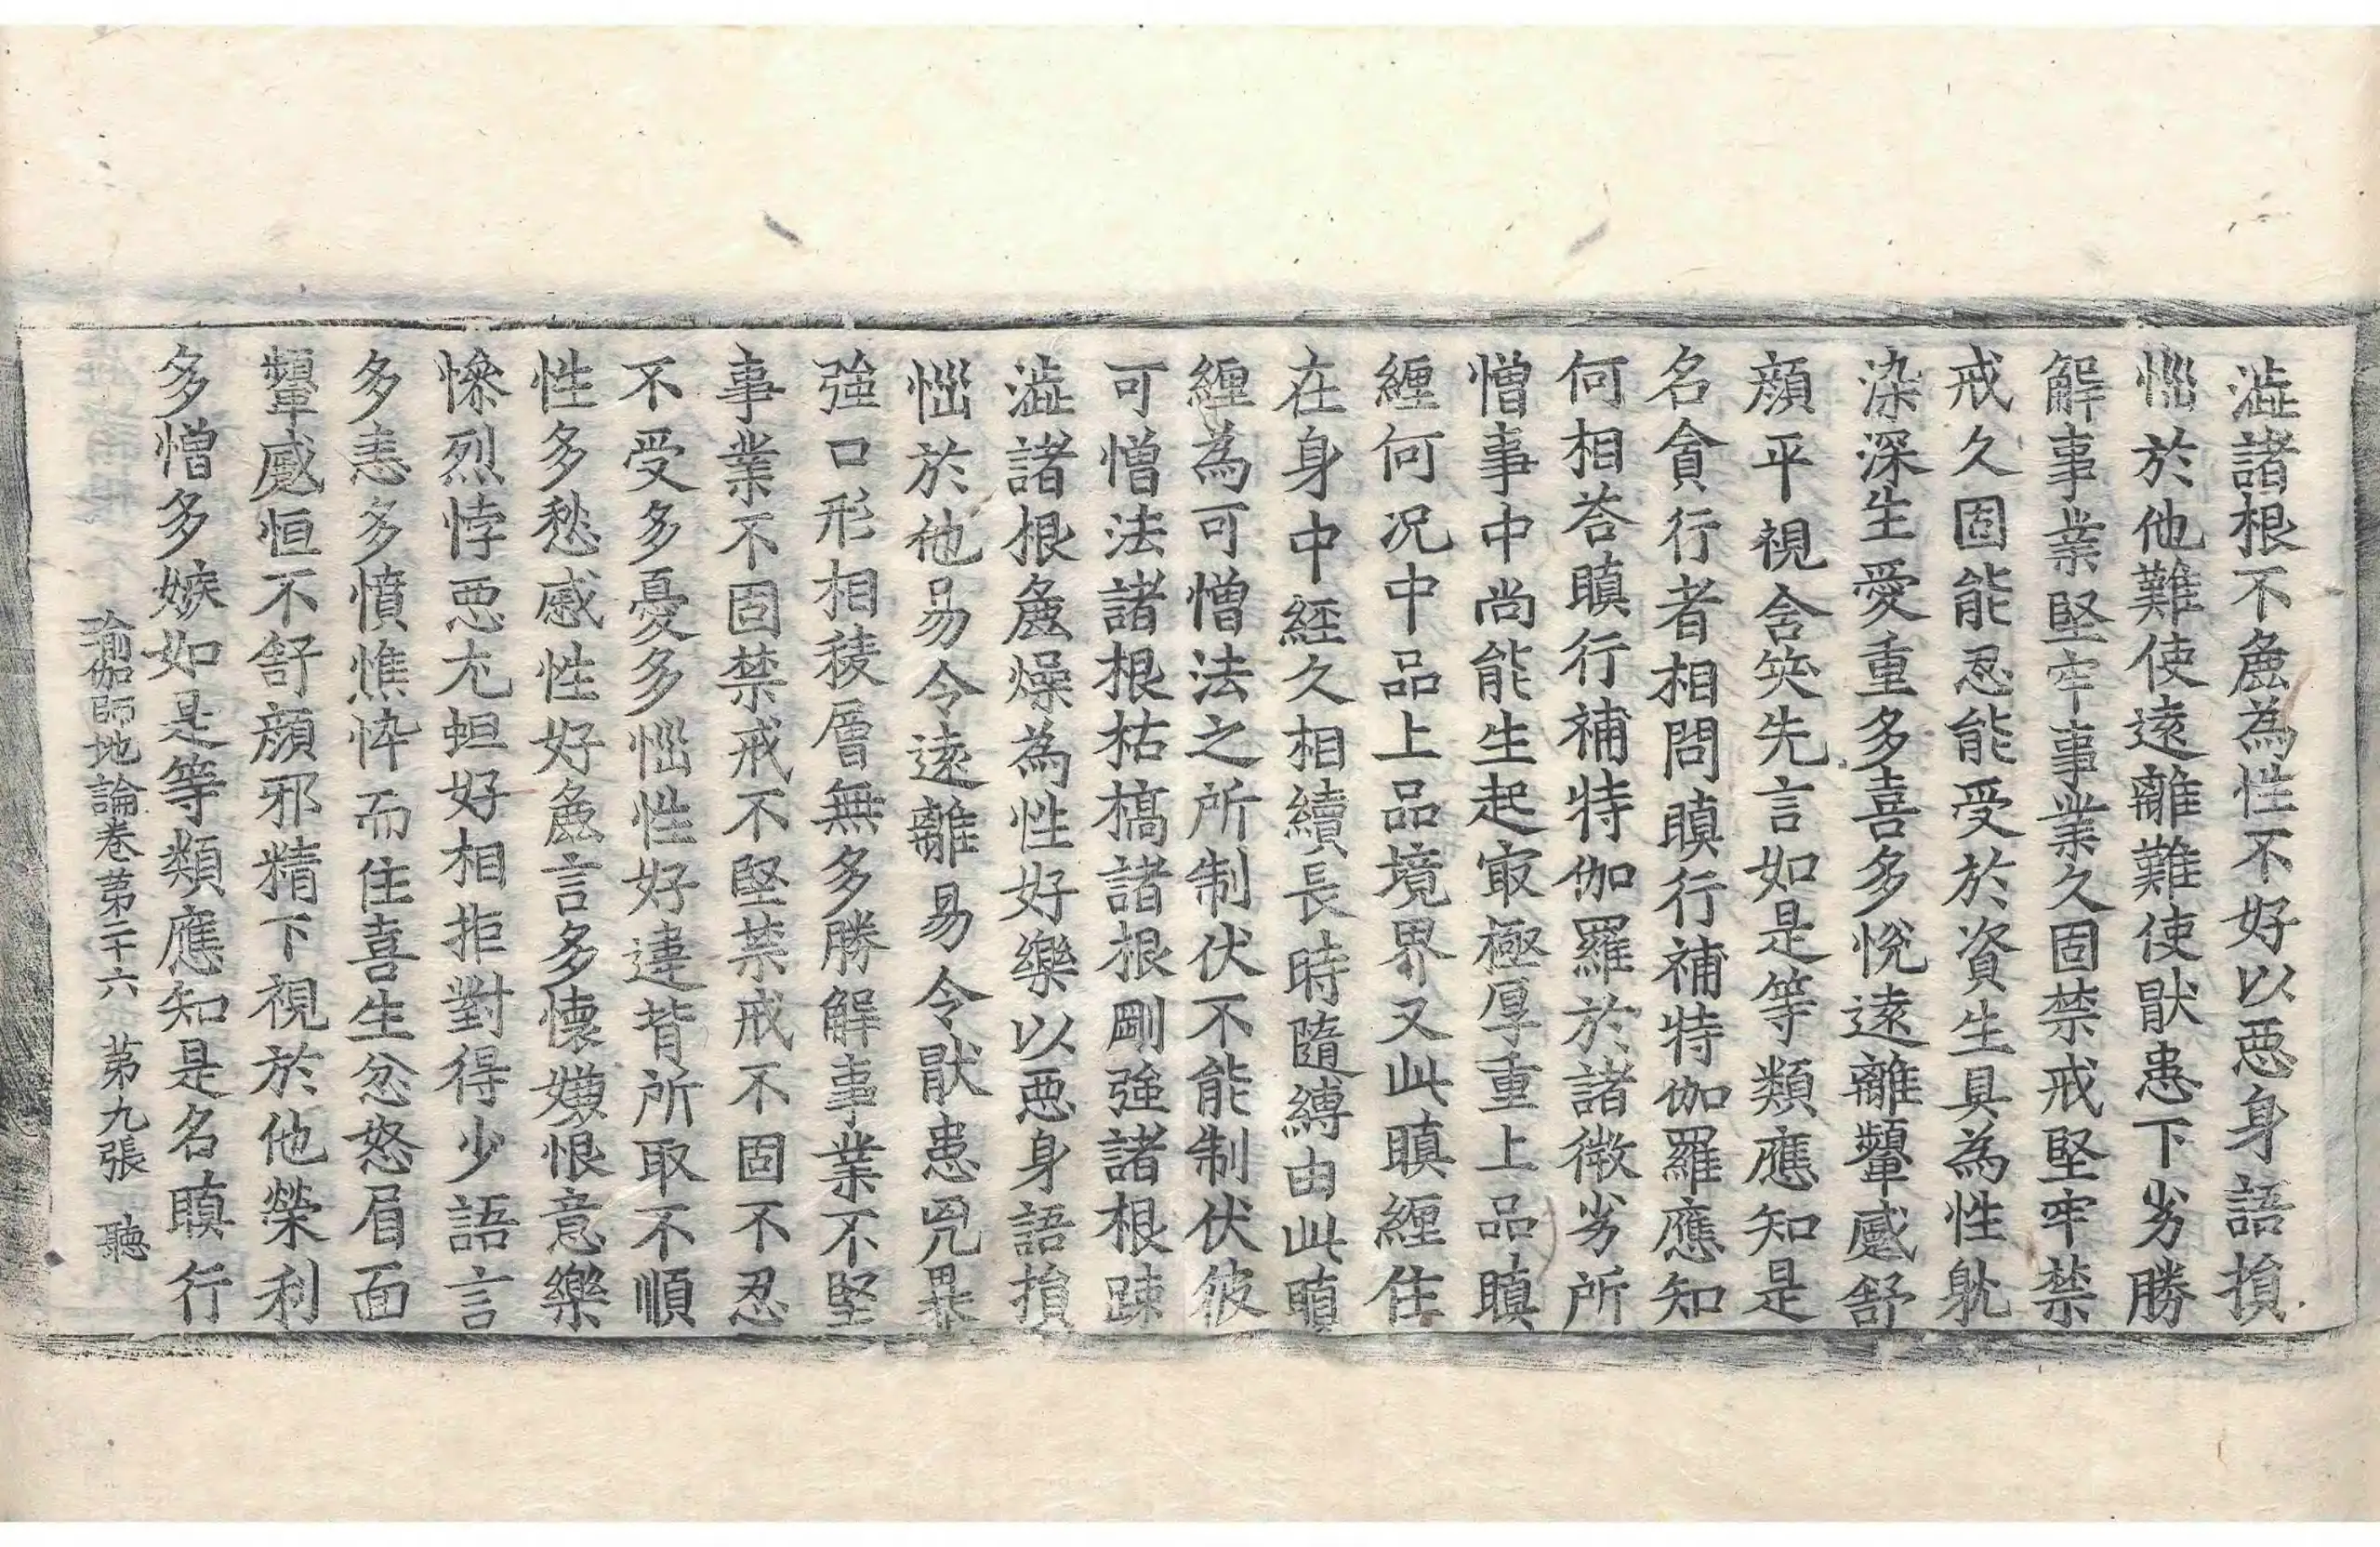 澁諸根不麁為性不好以惡身語損
惱於他難使遠離難使猒患下劣勝
解事業堅牢事業久固禁戒堅牢禁
戒久固能忍能受於資生具為性躭
染深生愛重多喜多悅遠離顰蹙舒
顔平視含笑先言如是等類應知是
名貪行者相問瞋行補特伽羅應知
何相荅瞋行補特伽羅於諸微劣所
憎事中尚能生起㝡極厚重上品瞋
纏何況中品上品境界又此瞋纏住
在身中經久相續長時隨縛由此瞋
纏為可憎法之所制伏不能制伏彼
可憎法諸根枯槁諸根剛強諸根踈
澁諸根麁燥為性好樂以惡身語損
惱於他易令遠離易令猒患兇暴
強口形相稜層無多勝解事業不堅
事業不固禁戒不堅禁戒不固不忍
不受多憂多惱性好違背所取不順
性多愁慼性好麁言多懷嫌恨意樂
慘烈悖惡尤蛆好相拒對得少語言
多恚多憤憔悴而住喜生忿怒眉面
顰蹙恒不舒顔邪精下視於他榮利
多憎多嫉如是等類應知是名瞋行
瑜伽師地論卷苐二十六 苐九張 聽